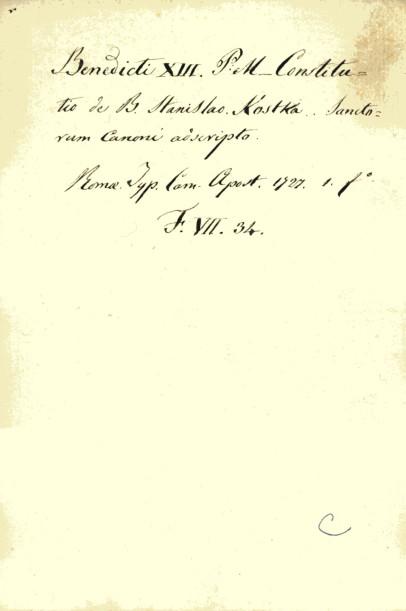 Benedicti XIII. P. M. Constitu=
tio de B. Stanislao. Kostka.. Sancto=
rum Canoni adscripto.
Romæ. Typ. Cam. Apost. 1727. 1. fº.
F. VII. 34.
C